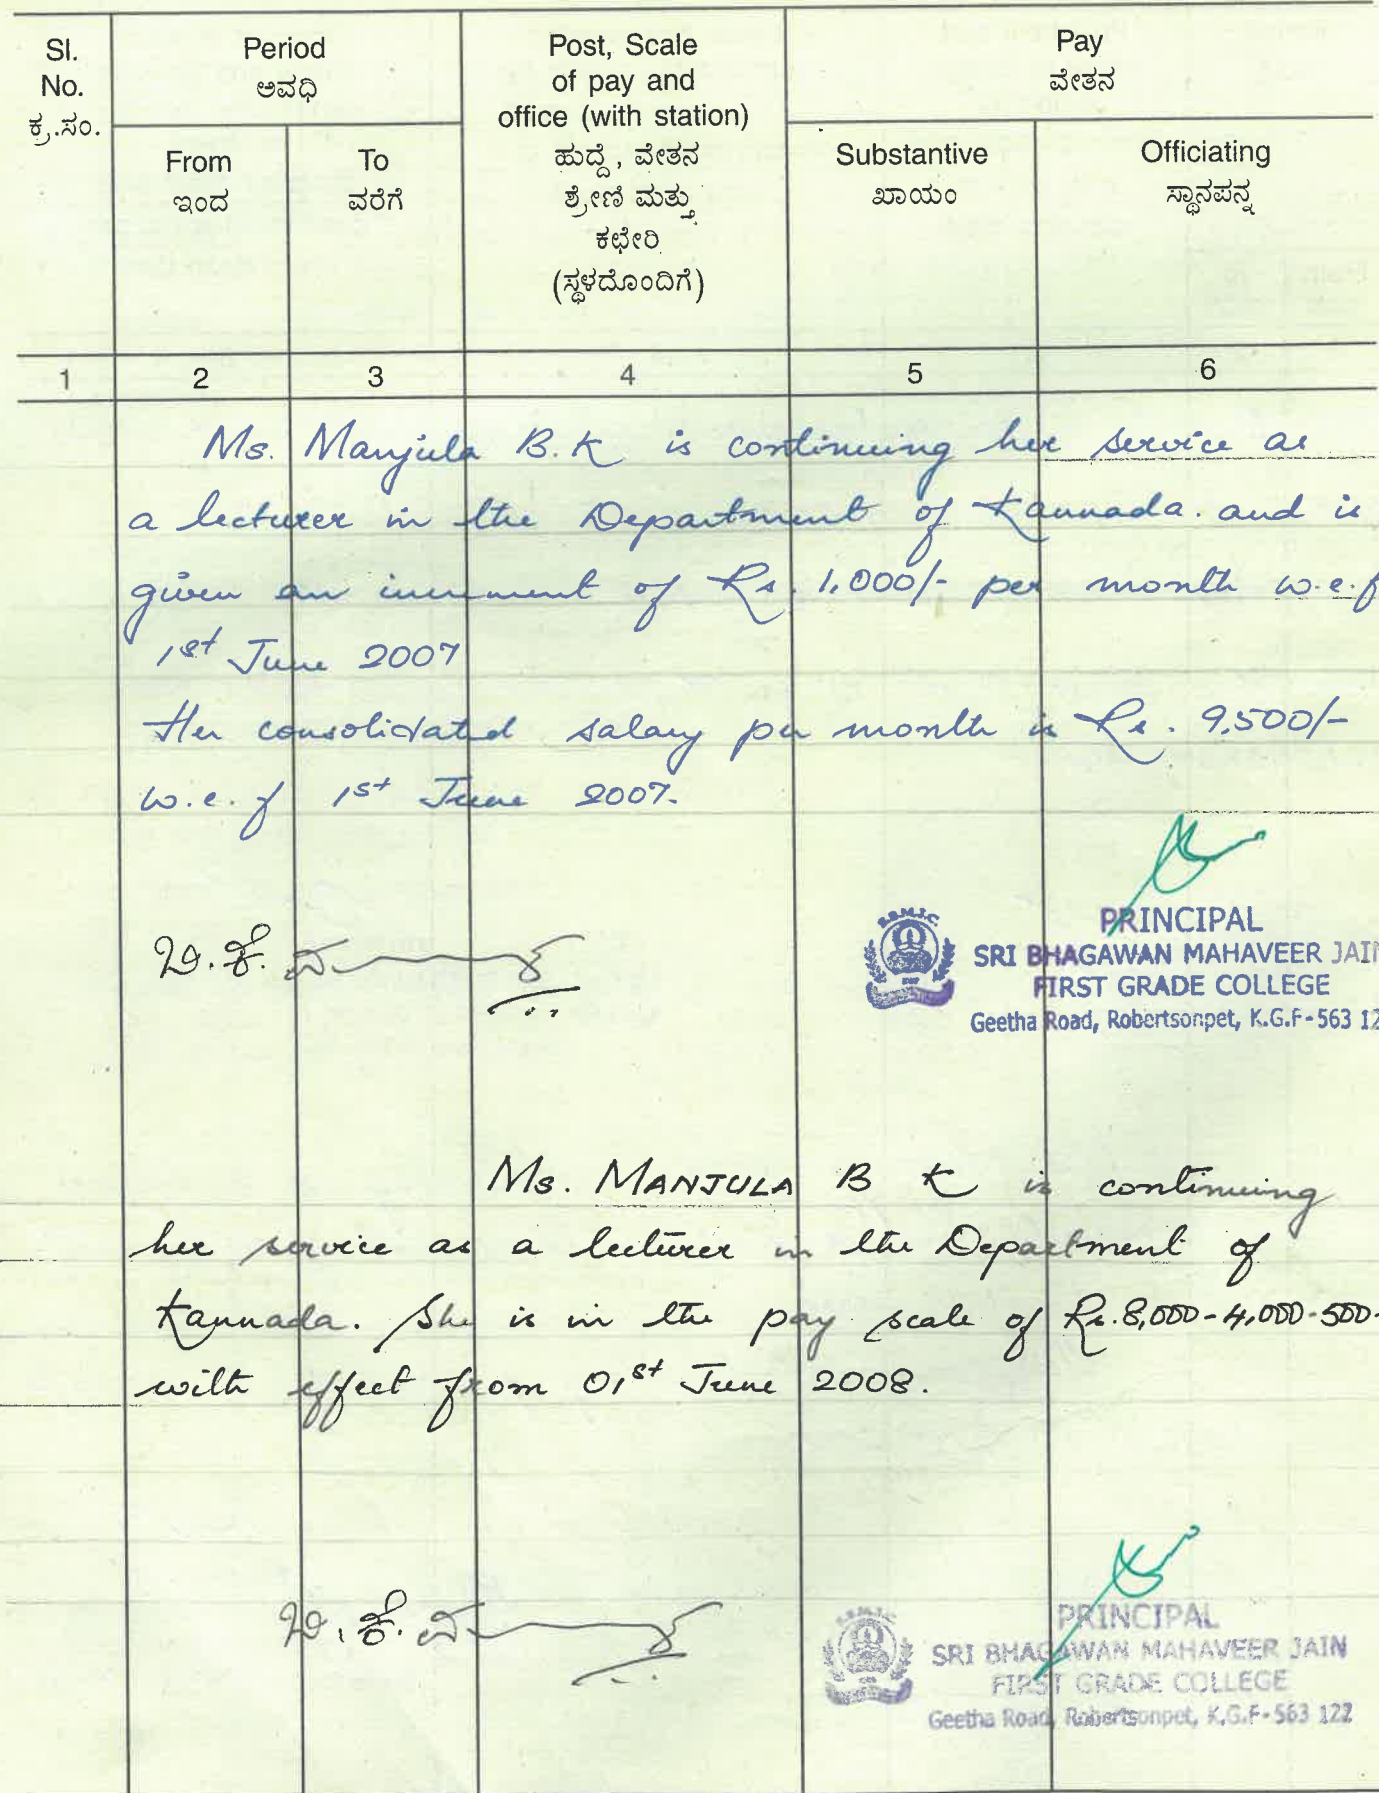 Sl.
No.
ಕ್ರ.ಸಂ.
Period
ಅವಧಿ
From
ಇಂದ
To
ವರೆಗೆ
Post, Scale
of pay and
office (with station)
ಹುದ್ದೆ, ವೇತನ
ಶ್ರೇಣಿ ಮತ್ತು
ಕಛೇರಿ
(ಸ್ಥಳದೊಂದಿಗೆ)
Pay
ವೇತನ
Substantive
ಖಾಯಂ
Officiating
ಸ್ಥಾನಪನ್ನ
1 2 3 4 5 6
Ms. Manjula B.K is continuing her service as
a lecturer in the Department of Kannada. and is
given an increment of Rs. 1,000/- per month w.e.f
1st June 2007
Her consolidated salary per month is Rs. 9,500/-
w.e.f 1st June 2007.
ಬಿ.ಕೆ.
S.B.M.J.C.
PRINCIPAL
SRI BHAGAWAN MAHAVEER JAIN
FIRST GRADE COLLEGE
Geetha Road, Robertsonpet, K.G.F-563 12
Ms. MANJULA B K is continuing
her service as a lecturer in the Department of
Kannada. She is in the pay scale of Rs. 8,000-4,000-500-
with effect from 01st June 2008.
ಬಿ.ಕೆ.
PRINCIPAL
SRI BHAGAWAN MAHAVEER JAIN
FIRST GRADE COLLEGE
Geetha Road, Robertsonpet, K.G.F-563 122